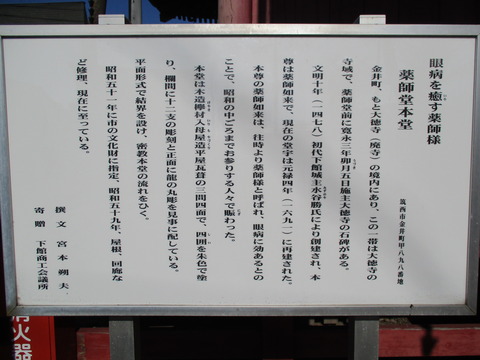 眼病を癒す薬師様
薬師堂本堂
筑西市金井町甲八九八番地
金井町、もと大徳寺(廃寺)の境内にあり、この一帯は大徳寺の
寺域で、薬師堂前に寛永三年卯月五日施主大徳寺の石碑がある。
文明十年(一四七八)初代下館城主水谷勝氏により創建され、本
尊は薬師如来で、現在の堂宇は元禄四年(一六九一)に再建された。
本尊の薬師如来は、往時より薬師様と呼ばれ、眼病に効あるとの
ことで、昭和の中ごろまでお参りする人々で賑わった。
本堂は木造欅材入母屋造平屋瓦葺の三間四面で、四囲を朱色で塗
り、欄間に十二支の彫刻と正面に龍の丸彫を見事に配している。
平面形式で結界を設け、密教本堂の流れをひく。
昭和五十一年に市の文化財に指定、昭和五十九年、屋根、回廊な
ど修理、現在に至っている。
撰文 宮本朔夫
寄贈 下館商工会議所
消火器